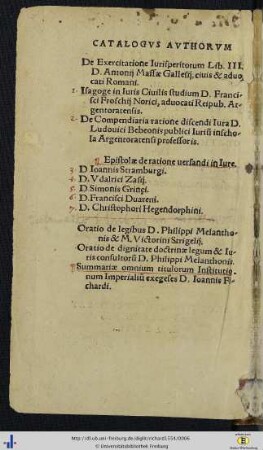 CATALOGVS AVTHORVM
De Exercitatione Iurisperitorum Lib. III.
D. Antonij Massæ Gallesij, ciuis & aduo
cati Romani.
1 Isagoge in Iuris Ciuilis studium D. Franci-
sci Froschij Norici, aduocati Reipub. Ar-
gentoratensis.
2. De Compendiaria ratione discendi Iura D.
Ludouici Bebeonis publici Iuris in scho-
la Argentoracensi professoris.
Epistolæ de ratione uersandi in Iure.
3 D Ioannis Stramburgi.
4 D. Vdalrici Zasij.
5 D. Simonis Grinęi.
6 D. Francisci Duareni.
7 D. Christophori Hegendorphini.
Oratio de legibus D. Philippi Melantho-
nis & M. Victorini Strigelij.
Oratio de dignitate doctrinæ legum & Iu-
ris consultorū D. Philippi Melanthonis.
Summariæ omnium titulorum Institutio-
num Imperialiū exegeses D. Ioannis Fi-
chardi.
© Universitätsbibliothek Freiburg